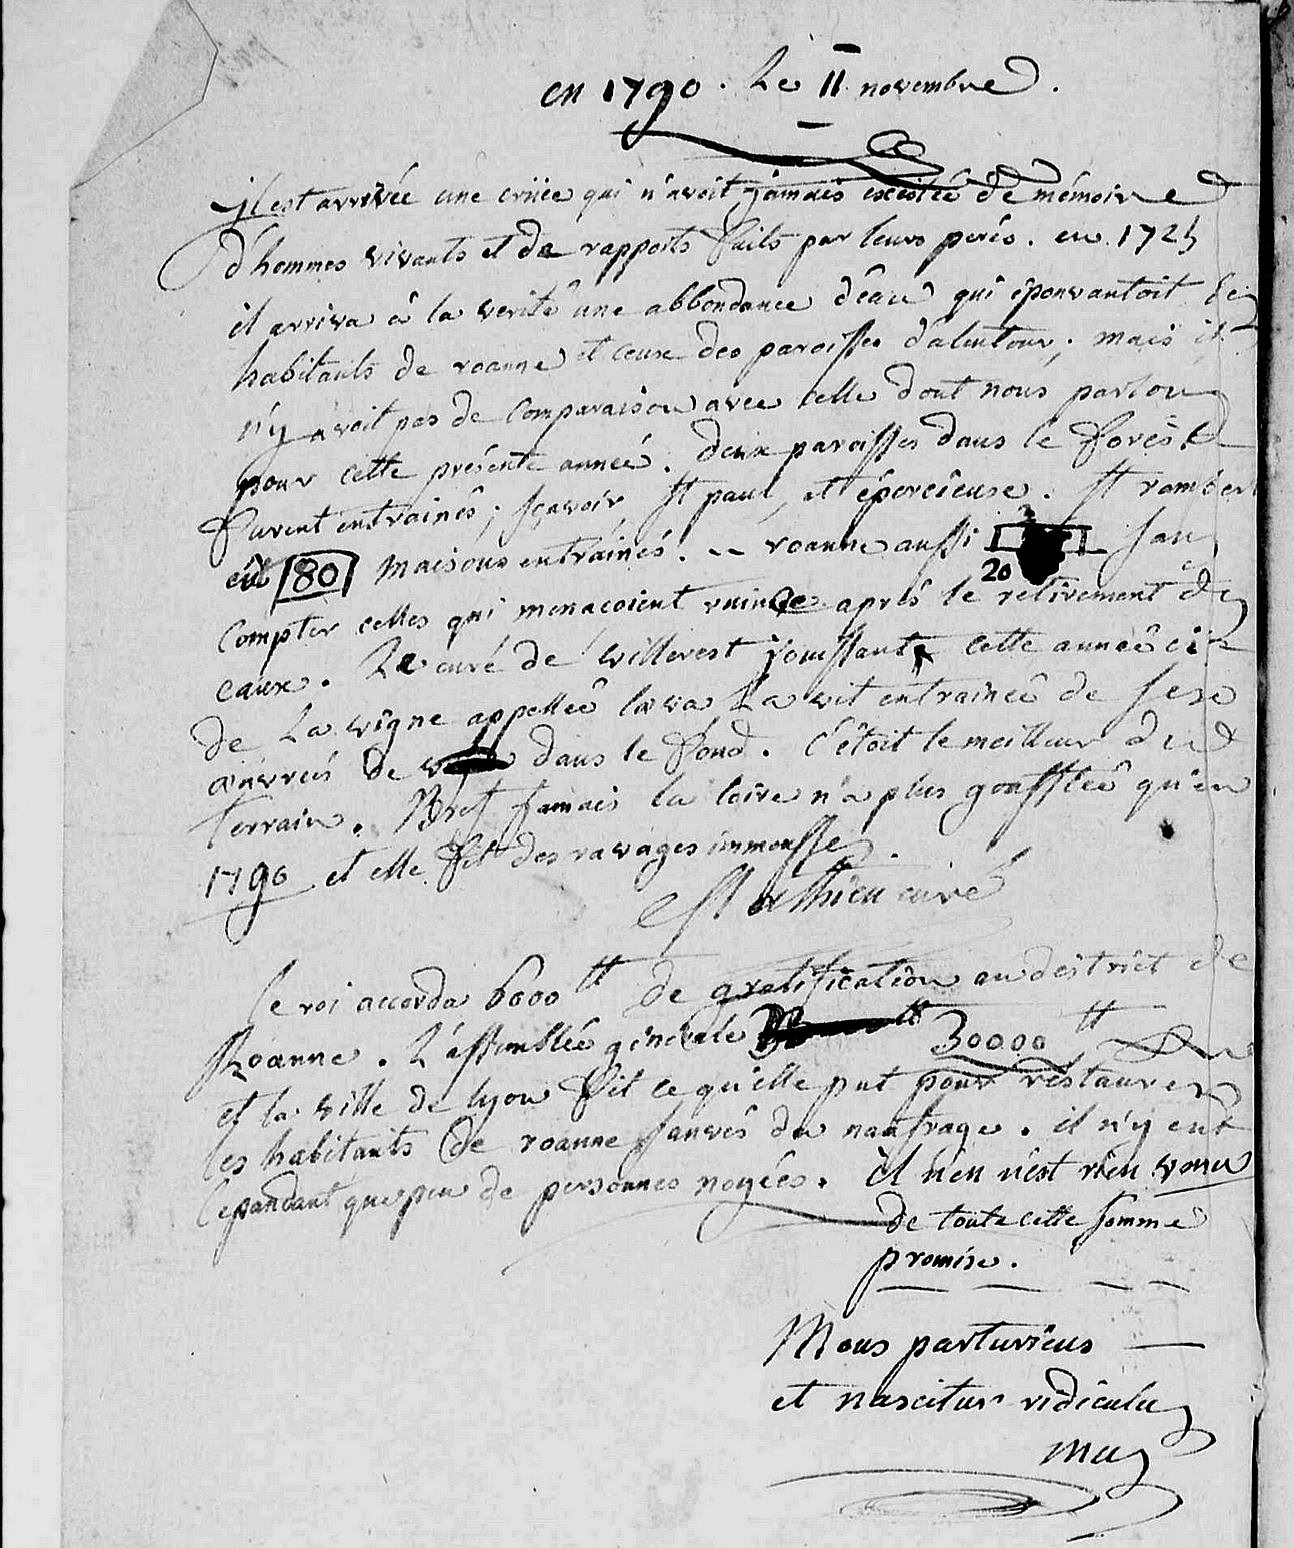 en 1790. Le 11 novembre.
il est arrivée une crüee qui n'avoit jamais existée de mémoire
d'hommes vivants et de rapports faits par leurs perés. en 1725
il arriva à la verité une abbondance d'eau qui épouvantoit les
habitants de roanne et ceux des paroisses d'alentour; mais il
n'y avoit pas de comparaison avec celle dont nous parlons
pour cette présente année. deux paroisses dans le forêst
furent entrainés; sçavoir St paul, et épercieuse. St rambert
eut 80 maisons entrainés. -- roanne aussi 20 sans
compter celles qui menacoient ruine après le retirement des
eaux. Le curé de villerest jouissant cette année ci
de La vigne appellée lava La vit entrainée de seze
œuvrées de dans le fond. C'étoit le meilleur du
terrain. Bref jamais la loire n'a plus gonfflée qu'en
1790 et elle fit des ravages immensses.
curé
le roi accorda 6000 tt de gratification au district de
Roanne. L'assemblée génerale 30000 tt
et la ville de lyon fit ce qu'elle put pour restaurer
les habitants de roanne sauvés du naufrage. il n'y eut
cependant que peu de personnes noyées. il n'en n'est rien venu
de toute cette somme
promise.
Mons parturiens
et nascitur ridiculus
mus